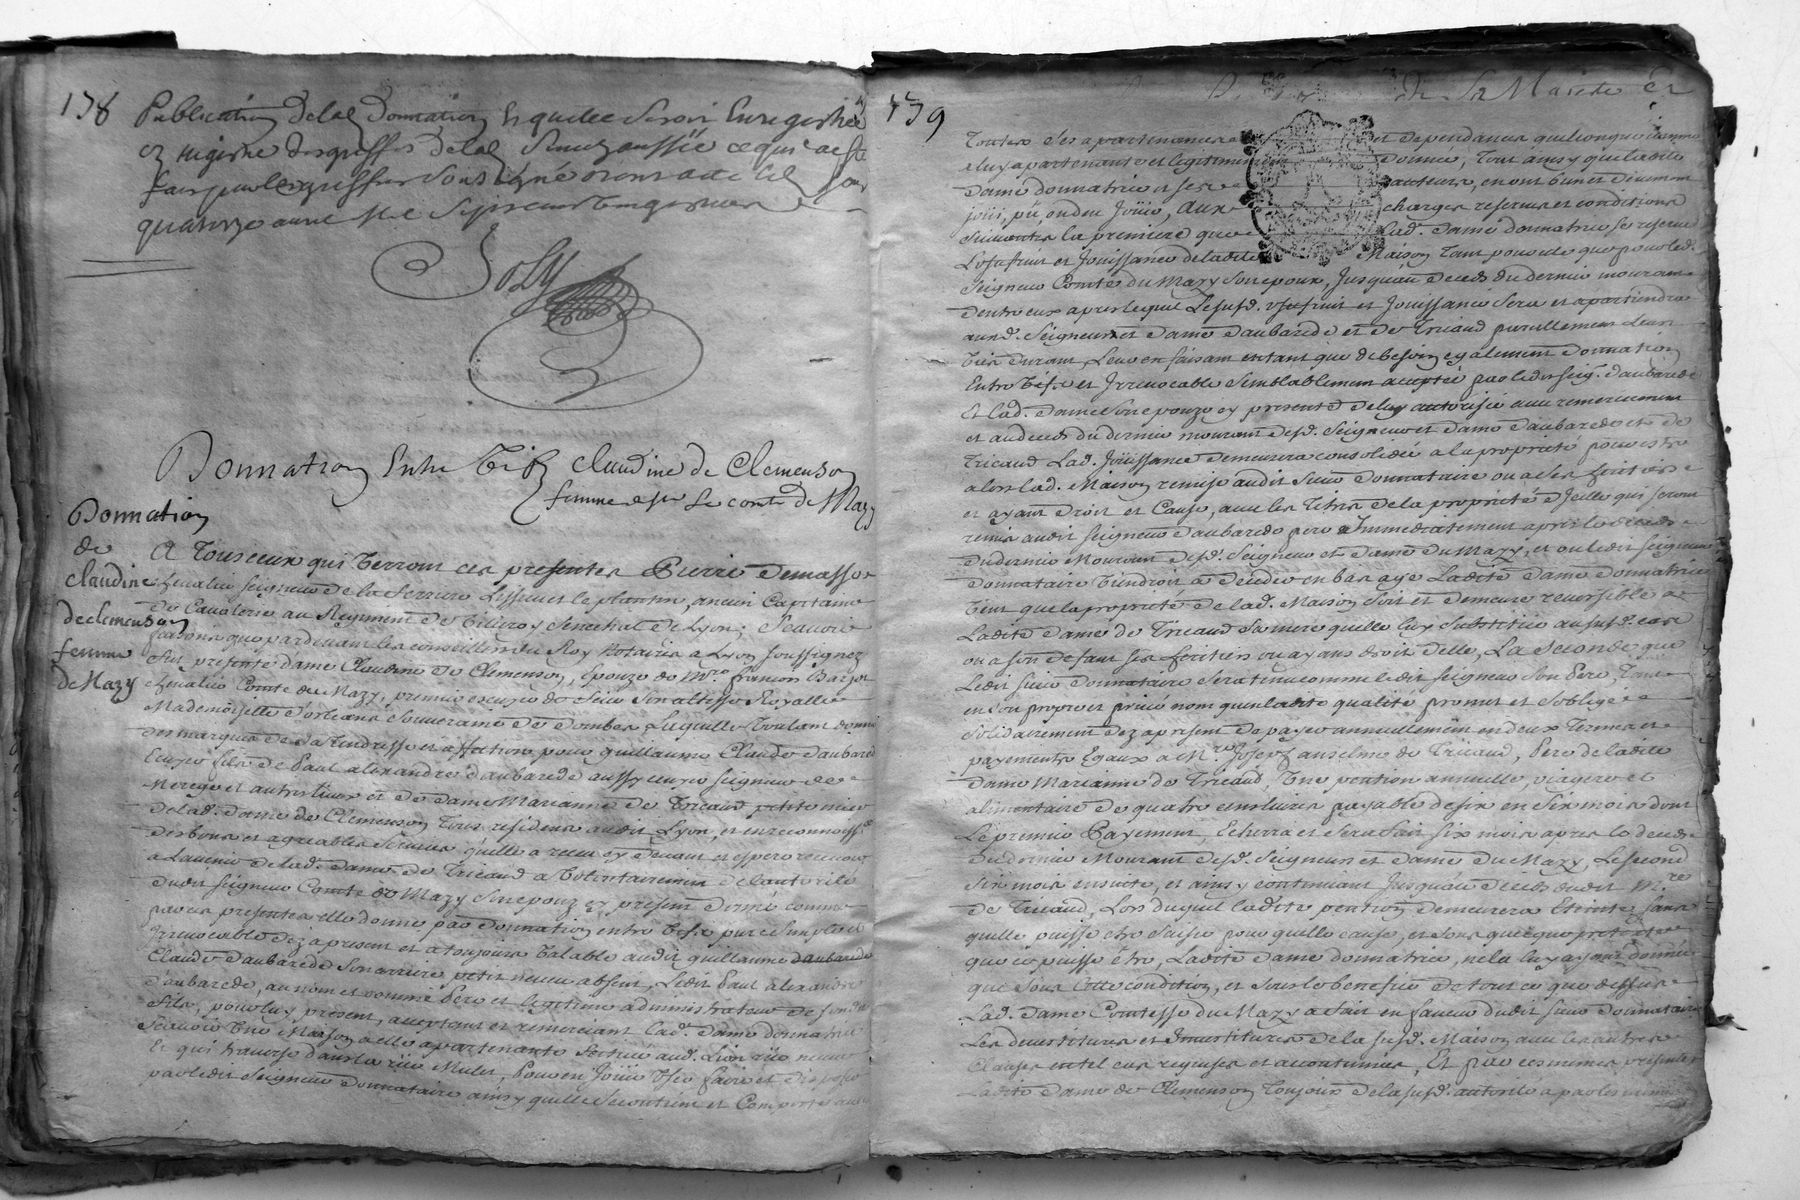 178
Publication de lad donnation laquelle seroit Enregistrée
ez registre des greffes de lad Senechaussée ce qui a esté
fait par le greffier sousigné dont acte led jour
quatorze avril mil sept cent vingt
Joly
Donnation Entre Vifs claudine de Clemenson
femme a sr le comte de Mazy
Donnation
de
claudine
de clemenson
femme
de Mazy
A Tous ceux qui Verront ces presentes Pierre Demasso
chevalier seigneur de la Ferriere Lissieu et le plantin, ancien Capitaine
de Cavalerie au Regiment de Villeroy senechal de Lyon; Scavoir
faisons que pardevant les conseillers du Roy Notaires a Lyon soussignez
fut presente dame Claudine de Clemenson, Epouze de Mre françois Barjot
chevalier Comte du Mazy, premier escuyer de feüe son altesse Royalle
Mademoiselle d'orleans souveraine de Dombes Laquelle Voulant donner
des marques de sa Tendresse et affection pour guillaume Claude Daubarede
Ecuyer fils de Paul alexandre daubarede aussy ecuyer seigneur de
et autres lieux et de dame Marianne de Tricaud petite niece
de lad. dame de Clemenson Tous residens audit Lyon, et en reconnoissce
des bons et agreables services qu'elle a receu cy devant et espere recevoir
a l'avenir de lad. dame de Tricaud a volontairement de l'autorité
dudit seigneur Comte de Mazy son epoux cy present donné comme
par ces presentes elle donne par donnation entre vifs pure simple et
Irrevocable dez a present et a toujours Valable audit guillaume
Claude Daubarede son arriere petit neveu absent, Ledit Paul alexandre
daubarede, au nom et comme Pere et legitime administrateur de sondit
fils, pour luy present, acceptant et remerciant lad. dame donnatrice
Scavoir Une Maison a elle apartenante scituée aud. Lion rüe neuve
Et qui traverse dans la rüe Mulet, Pour en Joüir Vser faire et disposer
par ledit seigneur donnataire ainsy quelle se contient et Comporte avec
139
de Sa Majesté
Toutes ses apartenances et dependances quelconques comme
a luy apartenante et legitimement donnée, Tout ainsy que ladite
dame donnatrice et ses auteurs, en ont bien et deuement
joüi, pû ou deu Joüir, aux charges reserves et conditions
suivantes la premiere que lad. dame donnatrice se reserve
L'usufruit et Joüissance de ladite Maison tant pour elle que pour led.
seigneur Comte du Mazy son epoux, Jusqu'au deceds du dernier mourant
d'entre eux apres lequel Le susd. usufruit et Joüissance sera et apartiendra
auxd. seigneur et dame daubarede et de Tricaud pareillement leur
Vie durant, Leur en faisant entant que de besoin egalement donnation
Entre Vifs et Irrevocable semblablement acceptée par ledit seigr. daubarede
Et lad. dame son epouze cy presente de luy autorisée avec remerciement
et au deceds du dernier mourant desd. seigneur et dame daubarede et de
Tricaud Lad. Joüissance demeurera consolidée a la proprieté pour estre
alors lad. Maison remise audit sieur donnataire ou a ses heritiers
et ayant droit et Cause, avec les Titres de la proprieté d'Icelle qui seront
remis audit seigneur daubarede pere Immediatement apres le deceds
du dernier Mourant desd. seigneur et dame du Mazy, et ou ledit seigneur
donnataire viendroit a deceder en bas age Ladite dame donnatrice
Veut que la proprieté de lad. Maison soit et demeure reversible a
Ladite dame de Tricaud sa mere quelle luy substitue au susd. cas
ou a son defaut ses heritiers ou ayans droit d'elle, La seconde que
Ledit sieur donnataire sera tenu comme ledit seigneur son Pere Tant
en son propre et privé nom qu'en ladite qualité promet et s'oblige
solidairement dez apresent de payer annuellement en deux Termes et
payements Egaux a Mre Joseph anselme de Tricaud, Pere de ladite
dame Marianne de Tricaud, Une pention annuelle, viagere et
alimentaire de quatre cens livres payable de six en six mois dont
Le premier Payement, Echerra et sera fait six mois apres le deceds
du dernier Mourant desd. seigneur et dame du Mazy, Le second
six mois ensuite, et ainsy continuant Jusqu'au deceds dudit Mre
de Tricaud, Lors duquel ladite pention demeurera Eteinte sans
quelle puisse etre saisie pour quelle cause, et sous quelque pretexte
que ce puisse être, Ladite dame donnatrice, ne la luy ayant donnée
que sous Cette condition, et sous le benefice de tout ce que dessus
Lad. dame Comtesse du Mazy a fait en faveur dudit sieur donnataire
Les devestitures et Investitures de la susd. Maison avec les autres
Clauses en tel cas requises et accoutumées, Et par ces mêmes presentes
Ladite dame de Clemenson Toujours de la susd. autorité a par les mêmes